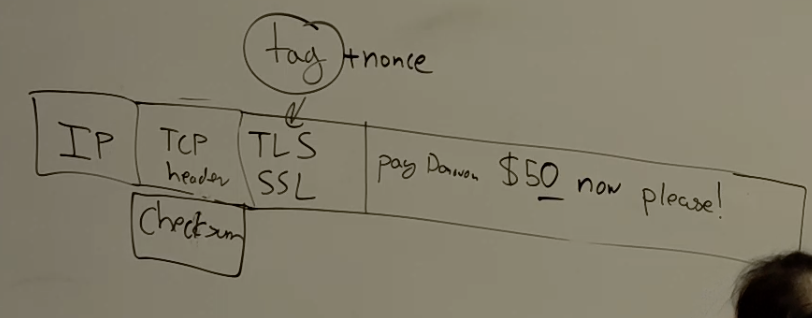 tag +nonce
IP
TCP
header
TLS
SSL
pay $50 now please!
Checksum